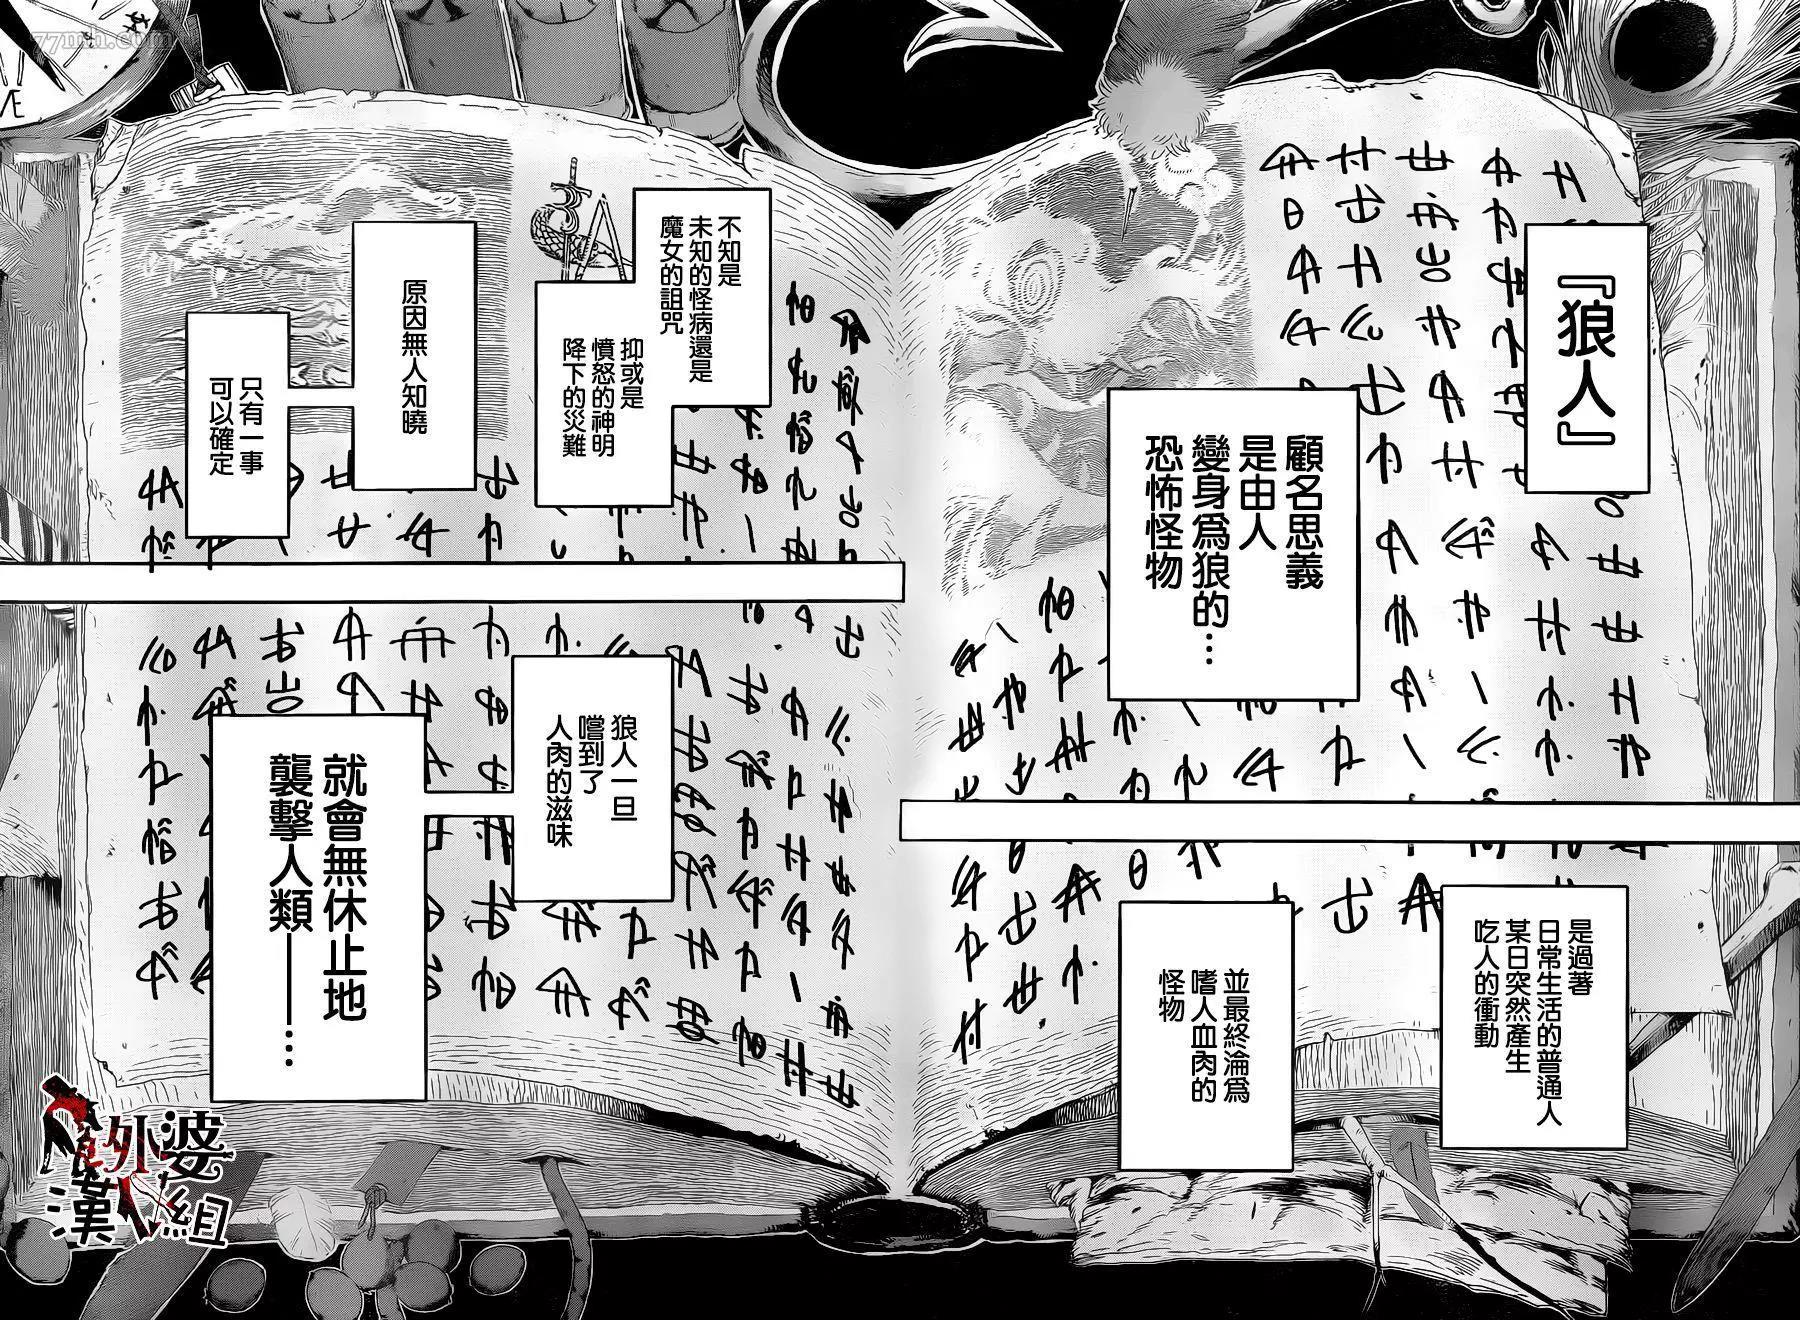 『狼人』
顧名思義
是由人
變身為狼的…
恐怖怪物
是過著
日常生活的普通人
某日突然產生
吃人的衝動
並最終淪為
嗜人血肉的
怪物
不知是
未知的怪病還是
魔女的詛咒
抑或是
憤怒的神明
降下的災難
原因無人知曉
只有一事
可以確定
狼人一旦
嚐到了
人肉的滋味
就會無休止地
襲擊人類——…
77mh.com
外婆
漢化組